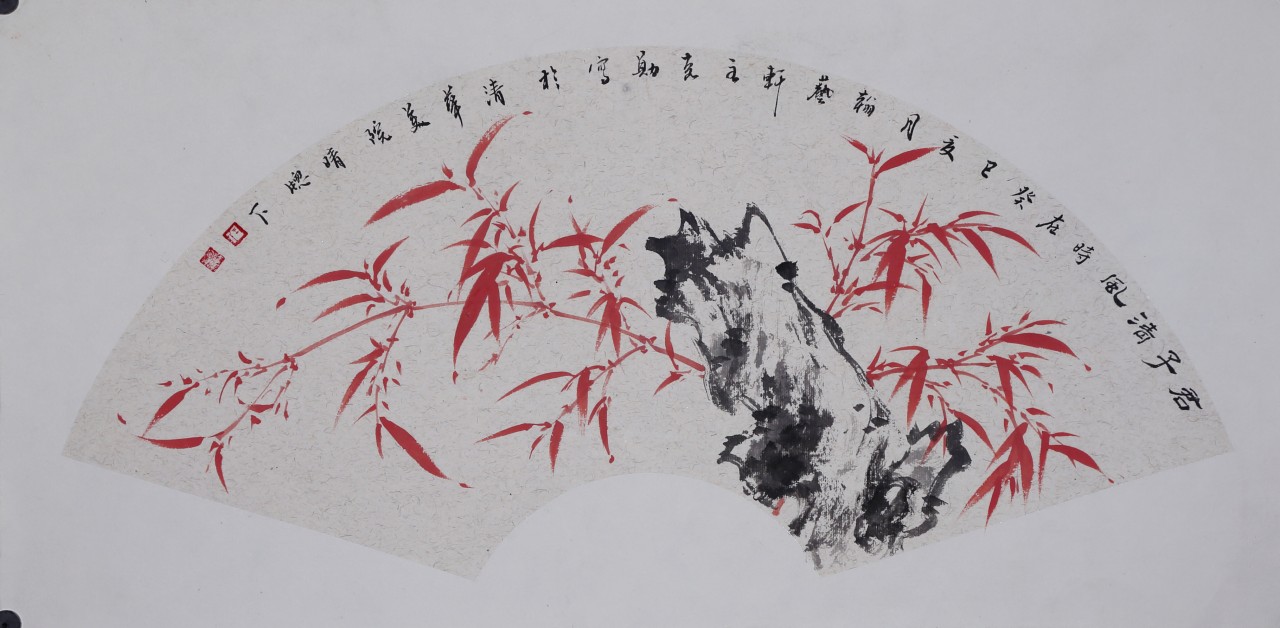 君子清風時在癸巳亥月翰藝軒主克勛寫於清華美院晴窗下